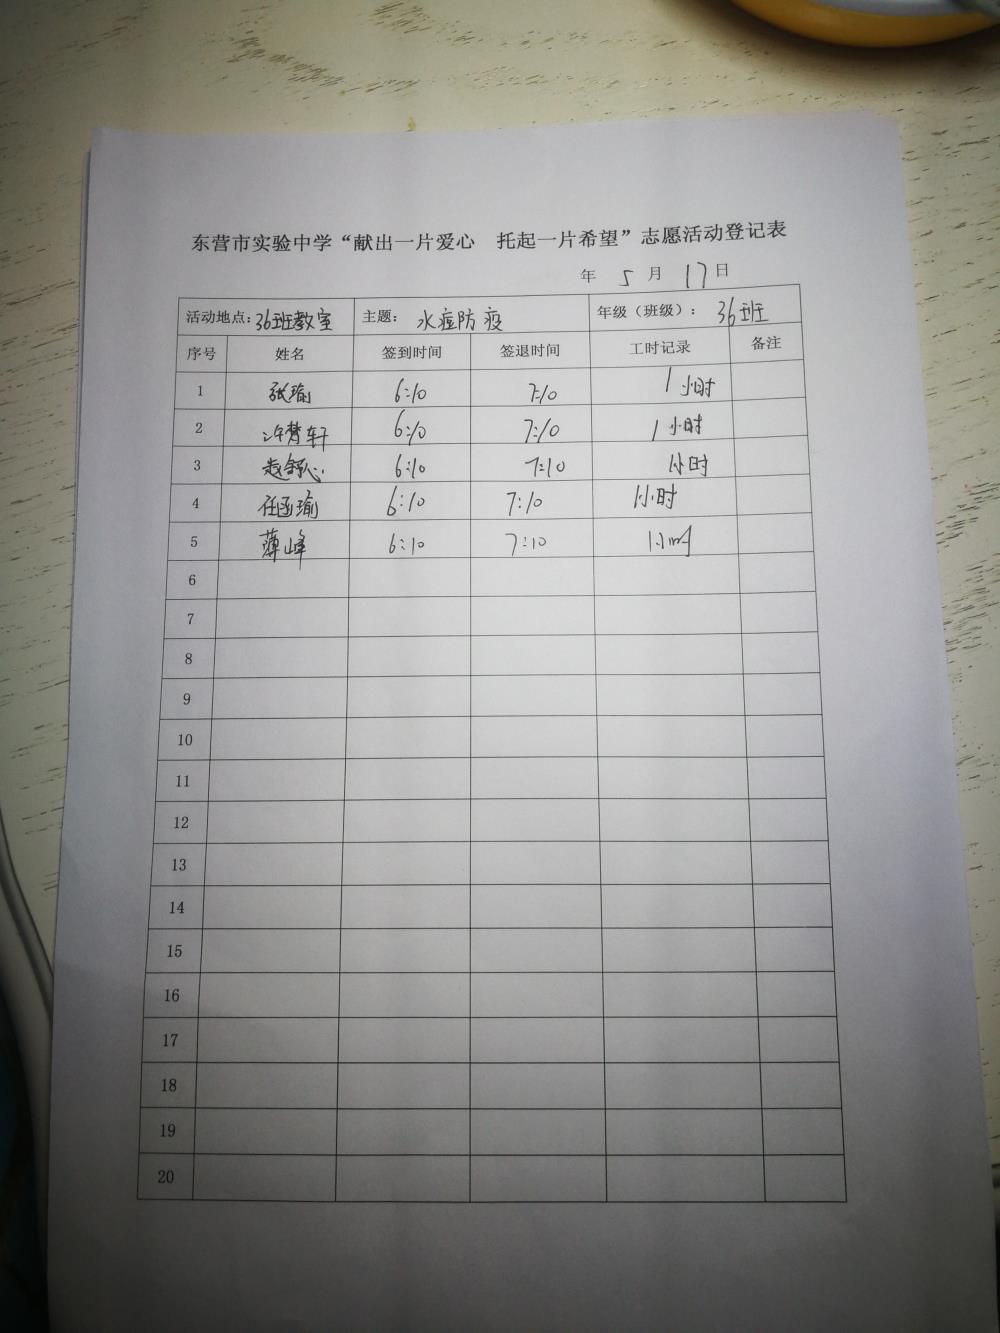 东营市实验中学“献出一片爱心 托起一片希望”志愿活动登记表
年 5 月 17 日
活动地点:36班教室 主题: 水痘防疫 年级（班级）: 36班
序号 姓名 签到时间 签退时间 工时记录 备注
1 张瑜 6:10 7:10 1小时
2 许梦轩 6:10 7:10 1小时
3 赵舒心 6:10 7:10 1小时
4 任函瑜 6:10 7:10 1小时
5 薄峰 6:10 7:10 1小时
6
7
8
9
10
11
12
13
14
15
16
17
18
19
20